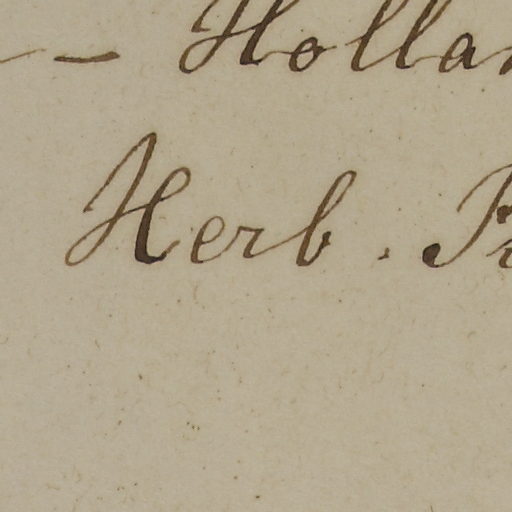 - Hollan
Herb.